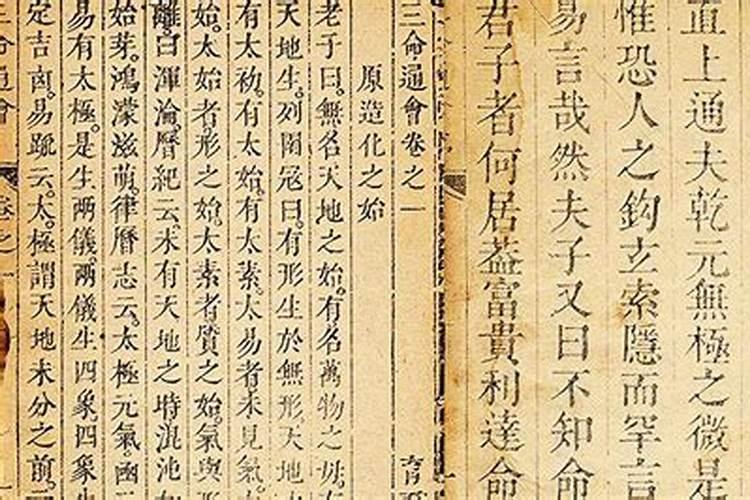 直上通夫乾元無極之微是
惟恐人之鈎玄索隱而罕言
易言哉然夫子又曰不知命
君子者何居葢富貴利達命
三命通會卷之一
原造化之始
老子曰。無名天地之始。有名萬物之母。
天地生。列圄冦曰。有形生於無形。天地
有太初。有太始。有太素。太易者未見氣。
始。太始者形之始。太素者質之始。氣與形
離。曰渾淪。曆紀云。未有天地之時混沌如
始芽。鴻濛滋萌。律曆志云。太極元氣。函
易有太極。是生兩儀。兩儀生四象四象生
定吉凶。易䟽云。太極謂天地未分之前。元
三命通會
卷之一